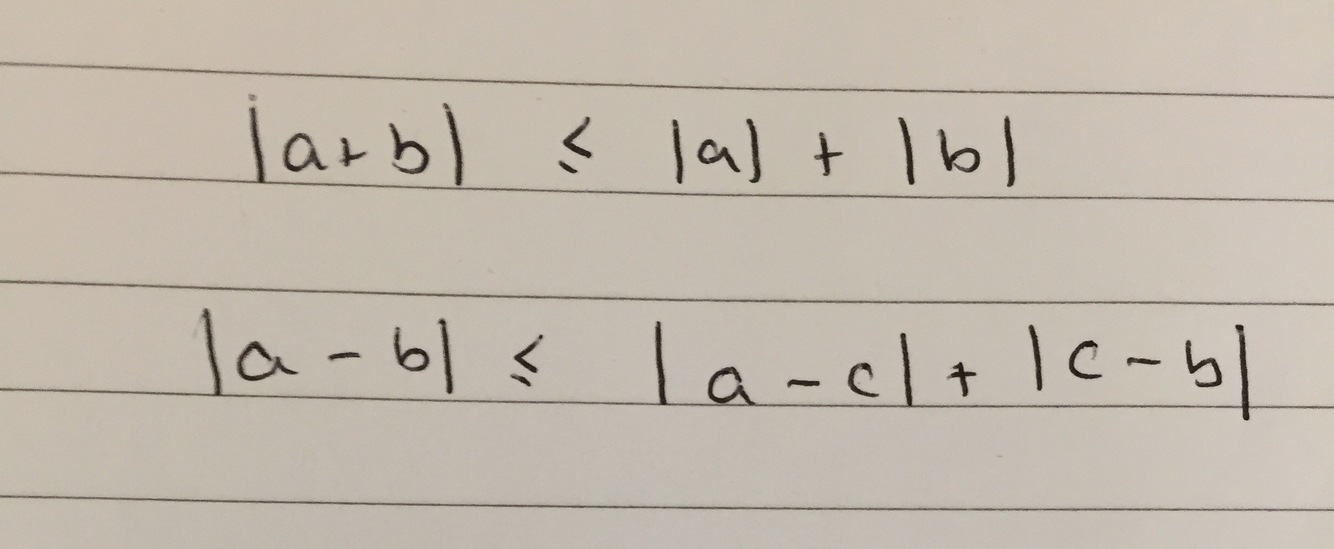 |a+b| ≤ |a| + |b|
|a - b| ≤ |a - c| + |c - b|